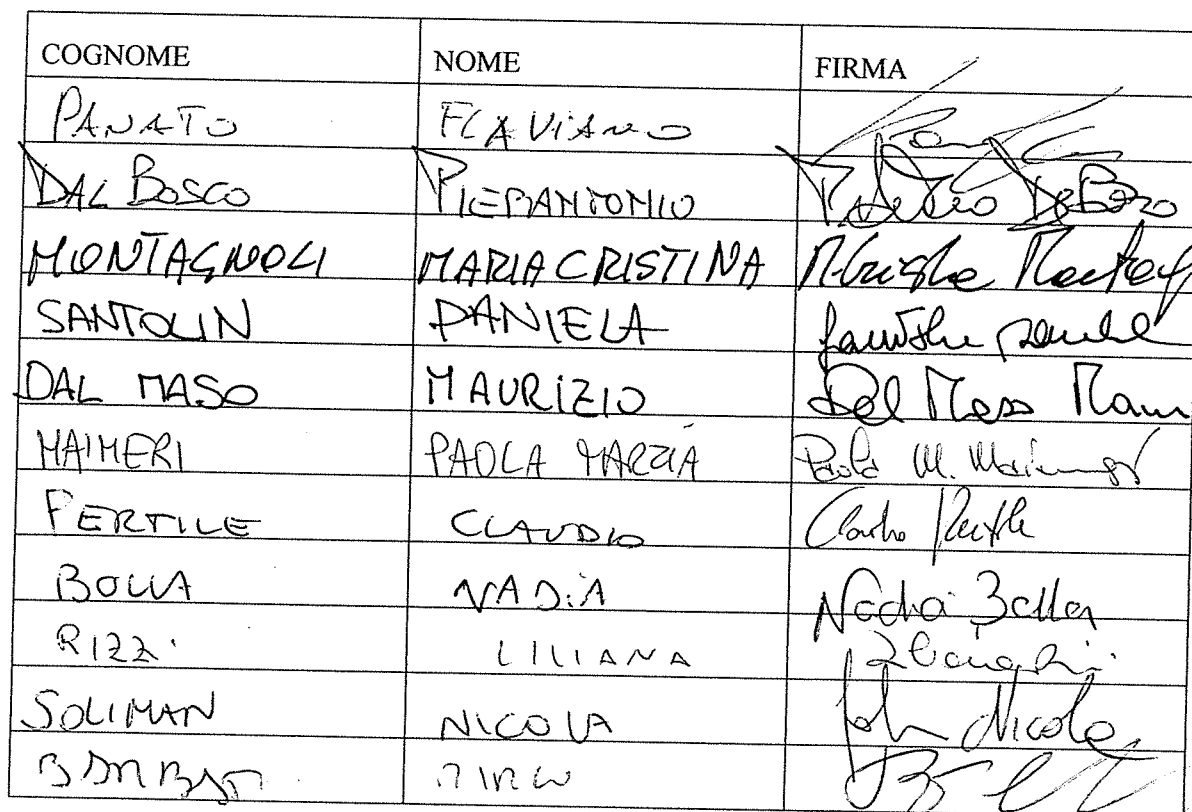 COGNOME NOME FIRMA
PANATO FLAVIANO
DAL BOSCO PIERANTONIO
MONTAGNOLI MARIA CRISTINA
SANTOLIN DANIELA
DAL MASO MAURIZIO Dal Maso Mau
MAIMERI PAOLA MARZIA Paola M.
PERTILE CLAUDIO Claudio Pertile
BOLLA NADIA Nadia Bolla
RIZZI LILIANA
SOLIMAN NICOLA Nicola